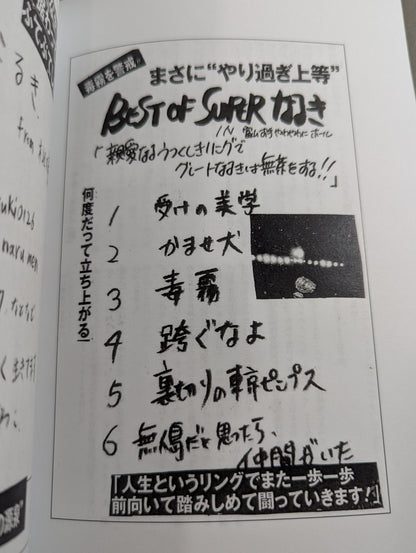 毒霧を警戒。
まさに“やり過ぎ上等”
BEST OF SUPER なるき
IN
ホール
「親愛なるうつくしきリングで
グレートなるきは無茶をする!!」
何度だって立ち上がる!
1 受けの美学
2 かませ犬
3 毒霧
4 跨ぐなよ
5 裏切りの東京ピンプス
6 無傷だと思ったら、
仲間がいた
「人生というリングでまた一歩一歩
前向いて踏みしめて闘っていきます!」
るき、
from
naru men